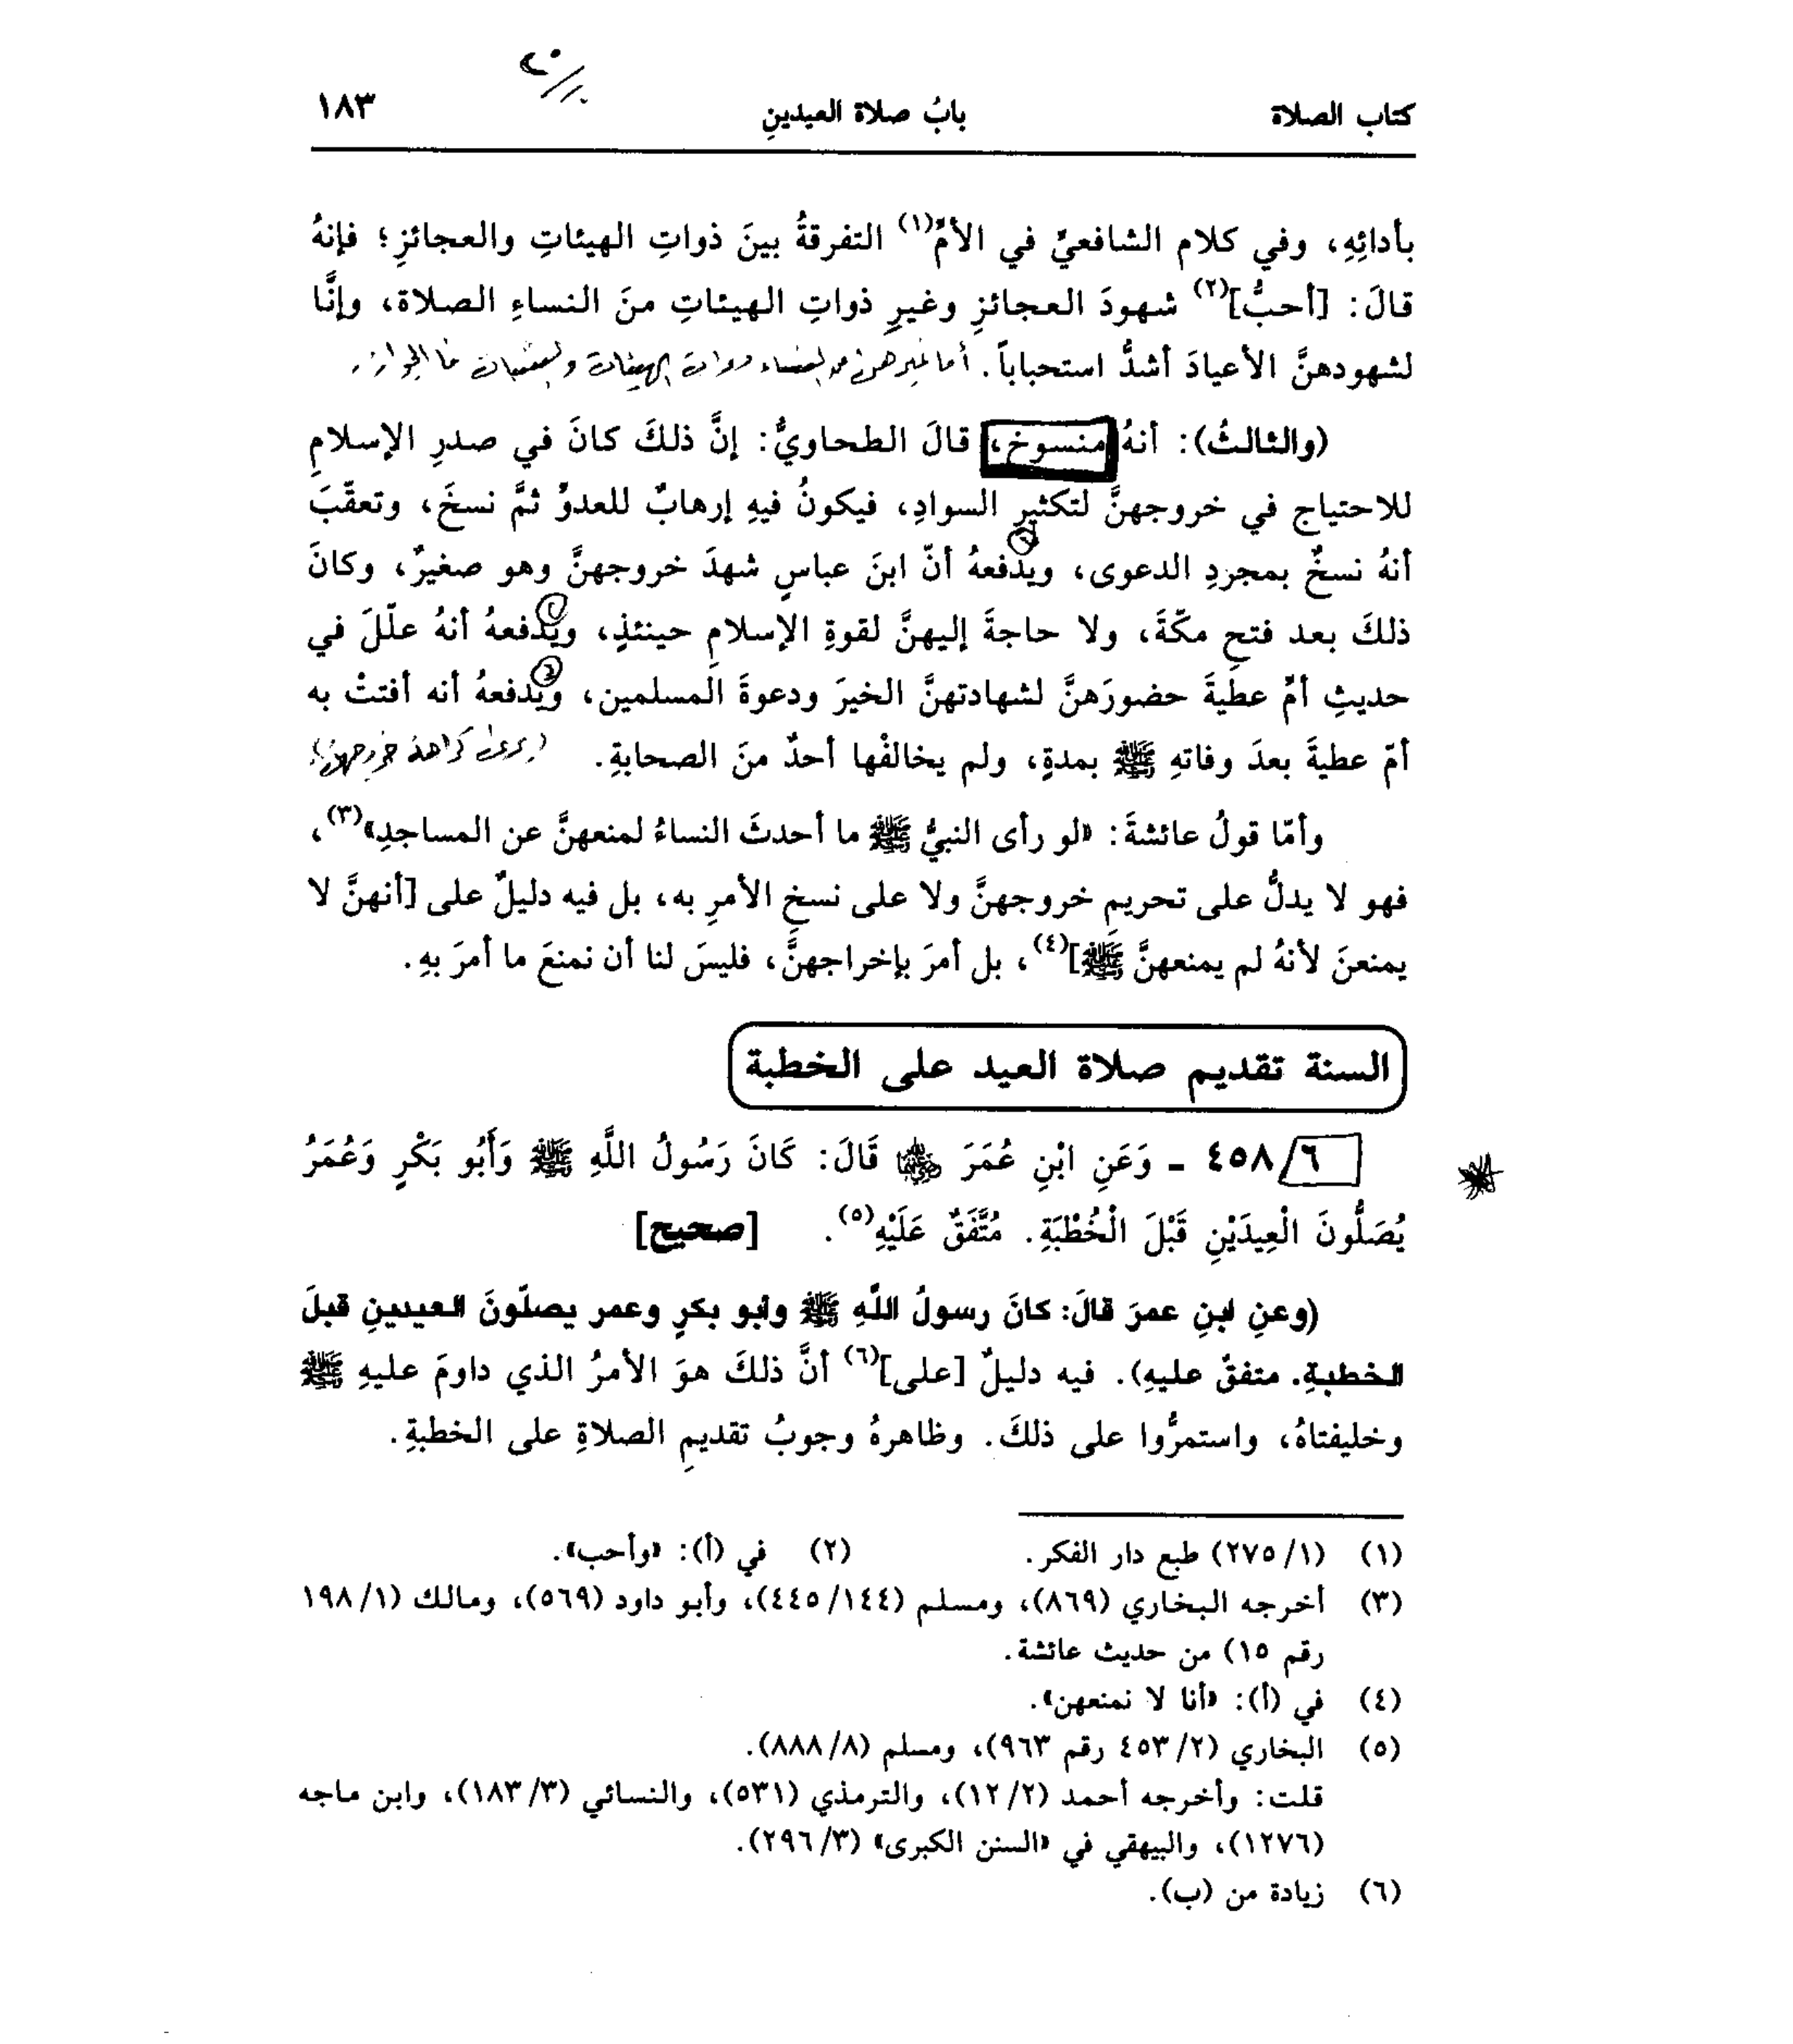 كتاب الصلاة بابُ صلاة العيدينِ ١٨٣
بأدائِهِ، وفي كلام الشافعيِّ في الأمِّ(١) التفرقةُ بينَ ذواتِ الهيئاتِ والعجائزِ؛ فإنهُ
قالَ: [أحبُّ](٢) شهودَ العجائزِ وغيرِ ذواتِ الهيئاتِ منَ النساءِ الصلاة، وإنَّا
لشهودهنَّ الأعيادَ أشدُّ استحباباً. أما غيرهن من النساء ذوات الهيئات
(والثالثُ): أنهُ منسوخ، قالَ الطحاويُّ: إنَّ ذلكَ كانَ في صدرِ الإسلامِ
للاحتياج في خروجهنَّ لتكثيرِ السوادِ، فيكونُ فيهِ إرهابٌ للعدوِّ ثمَّ نسخَ، وتعقّبَ
أنهُ نسخٌ بمجردِ الدعوى، ويدفعهُ أنّ ابنَ عباسٍ شهدَ خروجهنَّ وهو صغيرٌ، وكانَ
ذلكَ بعد فتحِ مكّةَ، ولا حاجةَ إليهنَّ لقوةِ الإسلامِ حينئذٍ، ويدفعهُ أنهُ علّلَ في
حديثِ أمِّ عطيةَ حضورَهنَّ لشهادتهنَّ الخيرَ ودعوةَ المسلمين، ويدفعهُ أنه أفتتْ به
أمّ عطيةَ بعدَ وفاتهِ ﷺ بمدةٍ، ولم يخالفْها أحدٌ منَ الصحابةِ. كراهة خروجهن
وأمّا قولُ عائشةَ: «لو رأى النبيُّ ﷺ ما أحدثَ النساءُ لمنعهنَّ عن المساجدِ»(٣)،
فهو لا يدلُّ على تحريمِ خروجهنَّ ولا على نسخِ الأمرِ به، بل فيه دليلٌ على [أنهنَّ لا
يمنعنَ لأنهُ لم يمنعهنَّ ﷺ](٤)، بل أمرَ بإخراجهنَّ، فليسَ لنا أن نمنعَ ما أمرَ بهِ.
السنة تقديم صلاة العيد على الخطبة
٤٥٨/٦ ـ وَعَنِ ابْنِ عُمَرَ ﷺ قَالَ: كَانَ رَسُولُ اللَّهِ ﷺ وَأَبُو بَكْرٍ وَعُمَرُ
يُصَلُّونَ الْعِيدَيْنِ قَبْلَ الْخُطْبَةِ. مُتَّفَقٌ عَلَيْهِ(٥). [صحيح]
(وعنِ ابنِ عمرَ قالَ: كانَ رسولُ اللَّهِ ﷺ وأبو بكرٍ وعمر يصلّونَ العيدينِ قبلَ
الخطبةِ. متفقٌ عليهِ). فيه دليلٌ [على](٦) أنَّ ذلكَ هوَ الأمرُ الذي داومَ عليهِ ﷺ
وخليفتاهُ، واستمرُّوا على ذلكَ. وظاهرهُ وجوبُ تقديمِ الصلاةِ على الخطبةِ.
(١) (٢٧٥/١) طبع دار الفكر. (٢) في (أ): «وأحب».
(٣) أخرجه البخاري (٨٦٩)، ومسلم (٤٤٥/١٤٤)، وأبو داود (٥٦٩)، ومالك (١٩٨/١
رقم ١٥) من حديث عائشة.
(٤) في (أ): «أنا لا نمنعهن».
(٥) البخاري (٤٥٣/٢ رقم ٩٦٣)، ومسلم (٨٨٨/٨).
قلت: وأخرجه أحمد (١٢/٢)، والترمذي (٥٣١)، والنسائي (١٨٣/٣)، وابن ماجه
(١٢٧٦)، والبيهقي في «السنن الكبرى» (٢٩٦/٣).
(٦) زيادة من (ب).